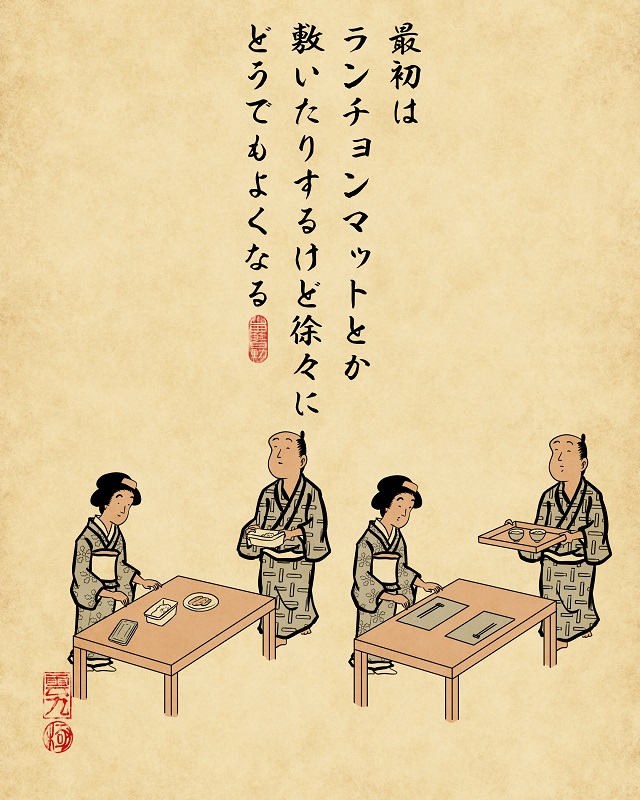 最初は
ランチョンマットとか
敷いたりするけど徐々に
どうでもよくなる